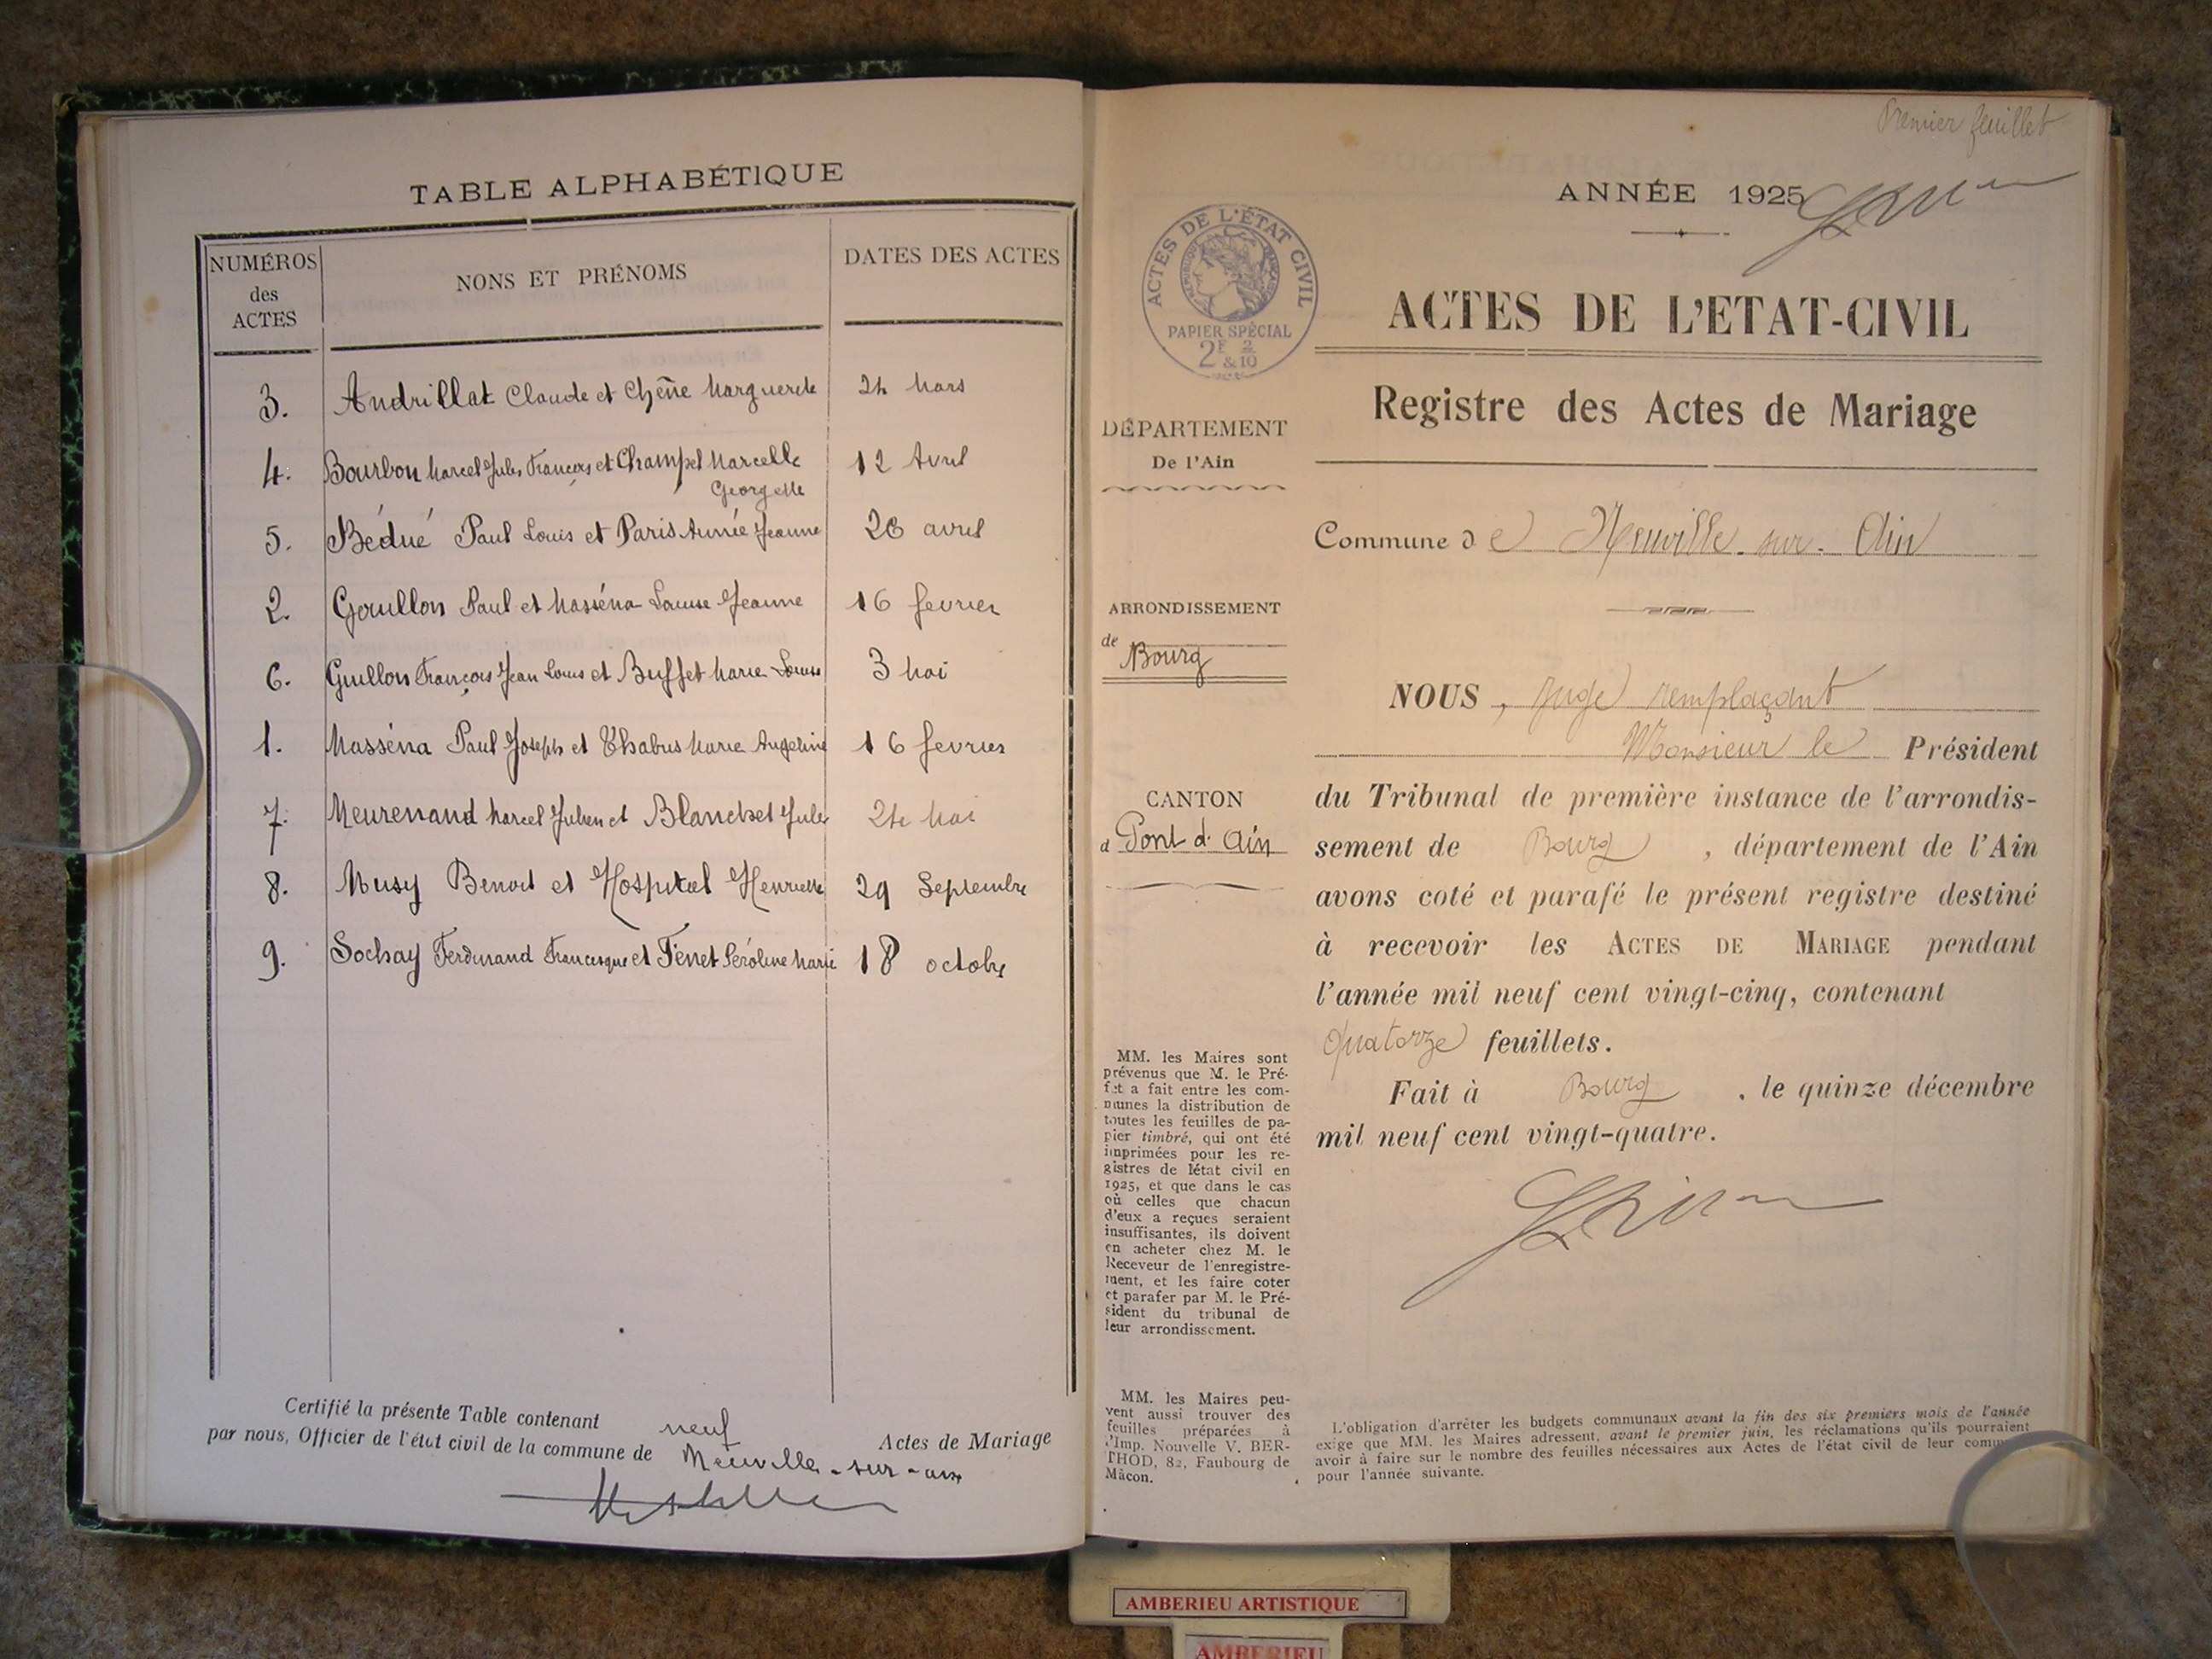 TABLE ALPHABÉTIQUE
NUMÉROS
des
ACTES
NONS ET PRÉNOMS
DATES DES ACTES
3. Andrillat Claude et Chêne Marguerite 24 Mars
4. Bourbon Marcel Jules François et Champel Marcelle 12 Avril
Georgette
5. Bédué Paul Louis et Paris Aimée Jeanne 28 avril
2. Gouillon Paul et Masséna Louise Jeanne 16 fevrier
6. Guillon François Jean Louis et Buffet Marie Louise 3 Mai
1. Masséna Paul Joseph et Chabus Marie Angeline 16 fevrier
7. Meurenand Marcel Julien et Blanchet Jules 24 Mai
8. Musy Benoit et Hospital Henriette 29 Septembre
9. Sochay Ferdinand Francisque et Fénet Marie 18 octobre
Certifié la présente Table contenant neuf Actes de Mariage
par nous, Officier de l'état civil de la commune de Neuville-sur-ain
Premier feuillet
ANNÉE 1925
ACTES DE L'ÉTAT CIVIL
RÉPUBLIQUE FRANÇAISE
PAPIER SPÉCIAL
2F & 2/10
ACTES DE L'ETAT-CIVIL
Registre des Actes de Mariage
DÉPARTEMENT
De l'Ain
Commune de Neuville-sur-Ain
ARRONDISSEMENT
de Bourg
CANTON
d Pont d'Ain
NOUS, Juge remplaçant
Monsieur le Président
du Tribunal de première instance de l'arrondis-
sement de Bourg, département de l'Ain
avons coté et parafé le présent registre destiné
à recevoir les ACTES DE MARIAGE pendant
l'année mil neuf cent vingt-cinq, contenant
Quatorze feuillets.
Fait à Bourg, le quinze décembre
mil neuf cent vingt-quatre.
MM. les Maires sont
prévenus que M. le Pré-
fet a fait entre les com-
munes la distribution de
toutes les feuilles de pa-
pier timbré, qui ont été
imprimées pour les re-
gistres de l'état civil en
1925, et que dans le cas
où celles que chacun
d'eux a reçues seraient
insuffisantes, ils doivent
en acheter chez M. le
Receveur de l'enregistre-
ment, et les faire coter
et parafer par M. le Pré-
sident du tribunal de
leur arrondissement.
MM. les Maires peu-
vent aussi trouver des
feuilles préparées à
l'Imp. Nouvelle V. BER-
THOD, 82, Faubourg de
Mâcon.
L'obligation d'arrêter les budgets communaux avant la fin des six premiers mois de l'année
exige que MM. les Maires adressent, avant le premier juin, les réclamations qu'ils pourraient
avoir à faire sur le nombre des feuilles nécessaires aux Actes de l'état civil de leur commune
pour l'année suivante.
AMBERIEU ARTISTIQUE
AMBERIEU